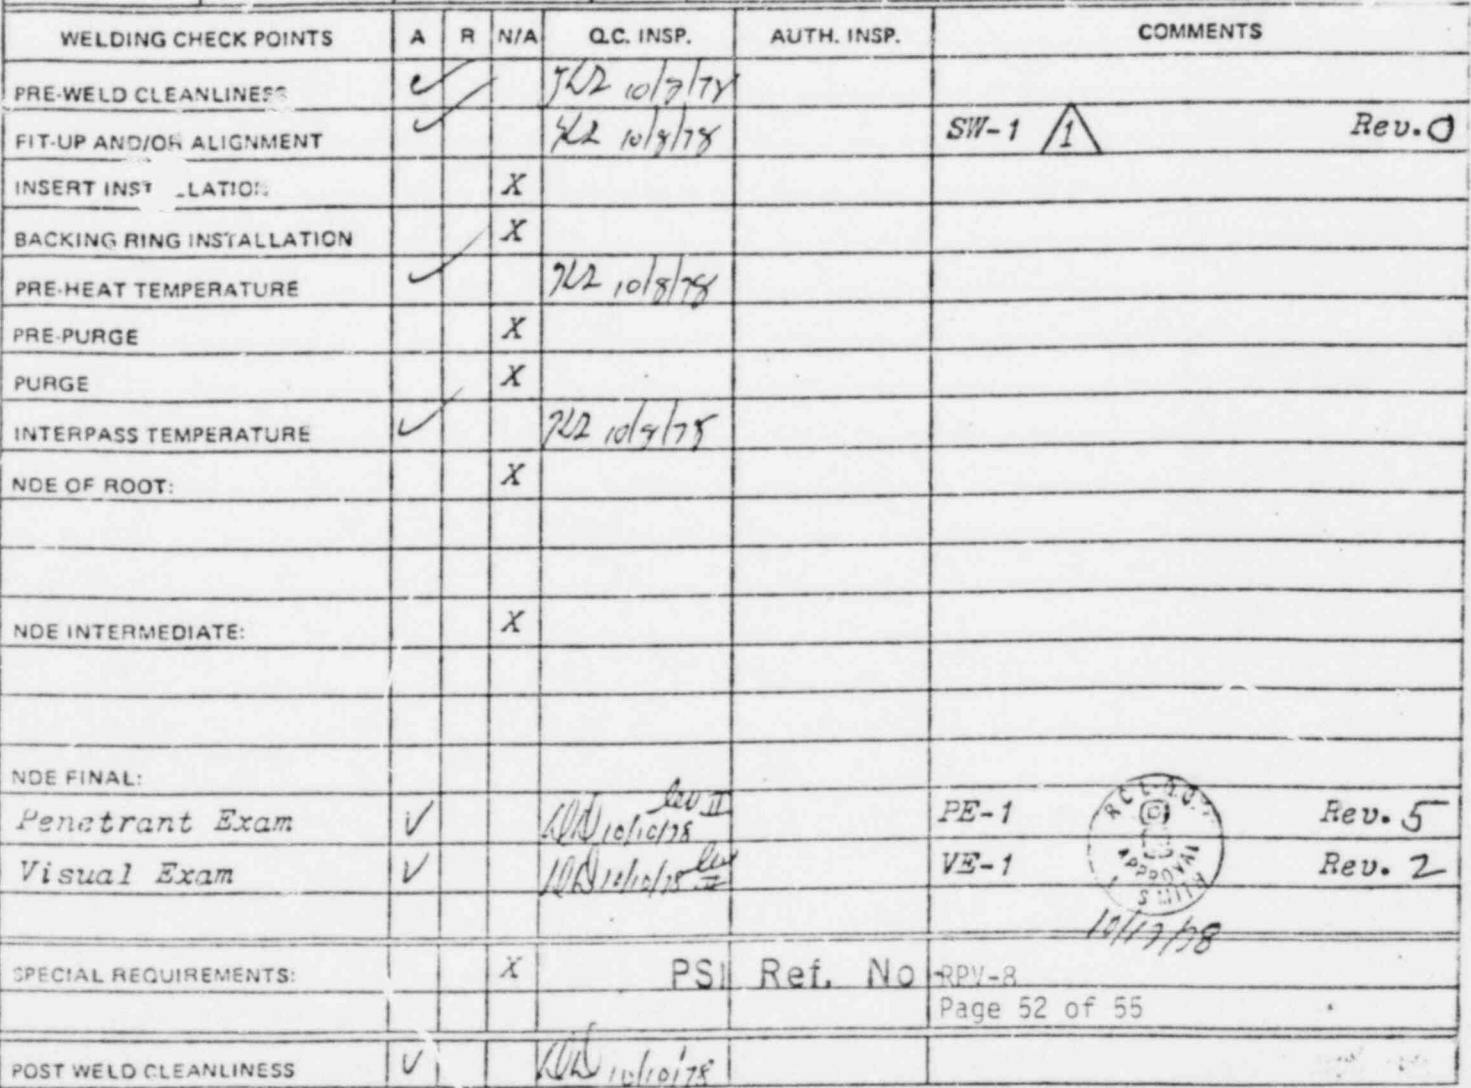 WELDING CHECK POINTS A R N/A Q.C. INSP. AUTH. INSP. COMMENTS
PRE-WELD CLEANLINESS ✓ 10/7/78
FIT-UP AND/OR ALIGNMENT ✓ 10/8/78 SW-1 1 Rev. 0
INSERT INST LLATION X
BACKING RING INSTALLATION X
PRE-HEAT TEMPERATURE ✓ 10/8/78
PRE-PURGE X
PURGE X
INTERPASS TEMPERATURE ✓ 10/8/78
NDE OF ROOT: X
NDE INTERMEDIATE: X
NDE FINAL:
Penetrant Exam ✓ 10/10/78 lev II PE-1 Rev. 5
Visual Exam ✓ 10/10/78 lev II VE-1 Rev. 2
APPROVAL
10/17/78
SPECIAL REQUIREMENTS: X PSI Ref. No RPV-8
Page 52 of 55
POST WELD CLEANLINESS ✓ 10/10/78